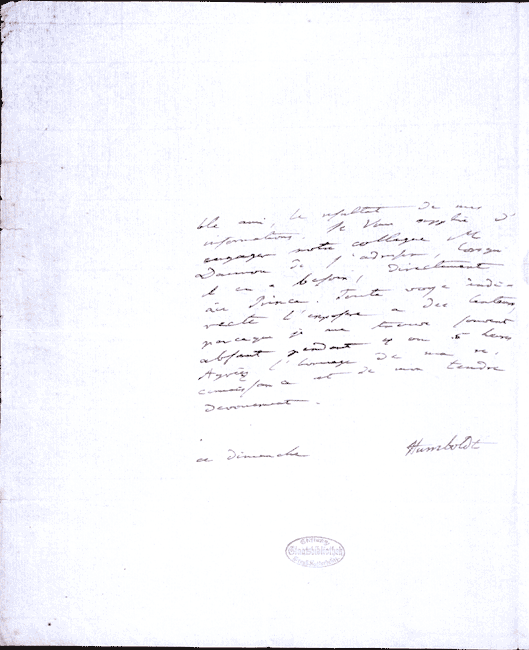 ble ami, le résultat de mes
informations. Je Vous supplie d'
engager notre collegue M
Daunou de s'adresser, lorsqu'
il en a besoin, directement
au Prince. Toute voye indi-
recte l'expose a des lenteurs,
parceque je me trouve souvent
absent pendant 4 ou 5 heures
Agréez l'hommage de ma re-
connaissance et de mon tendre
devouement.
ce dimanche Humboldt
Stiftung
Staatsbibliothek
Preuß. Kulturbesitz